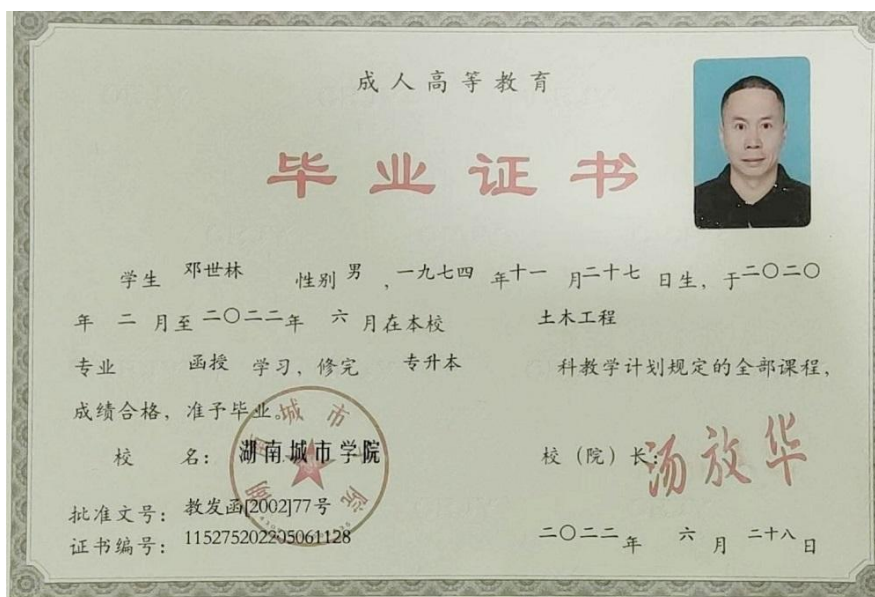 成人高等教育
毕业证书
学生 邓世林 性别 男 ,一九七四 年十一 月二十七 日生, 于二〇二〇
年 二 月至二〇二二年 六 月在本校 土木工程
专业 函授 学习, 修完 专升本 科教学计划规定的全部课程,
成绩合格, 准予毕业。
校 名: 湖南城市学院 校(院)长: 汤放华
批准文号: 教发函[2002]77号
证书编号: 115275202205061128 二〇二二 年 六 月 二十八 日
湖南城市学院